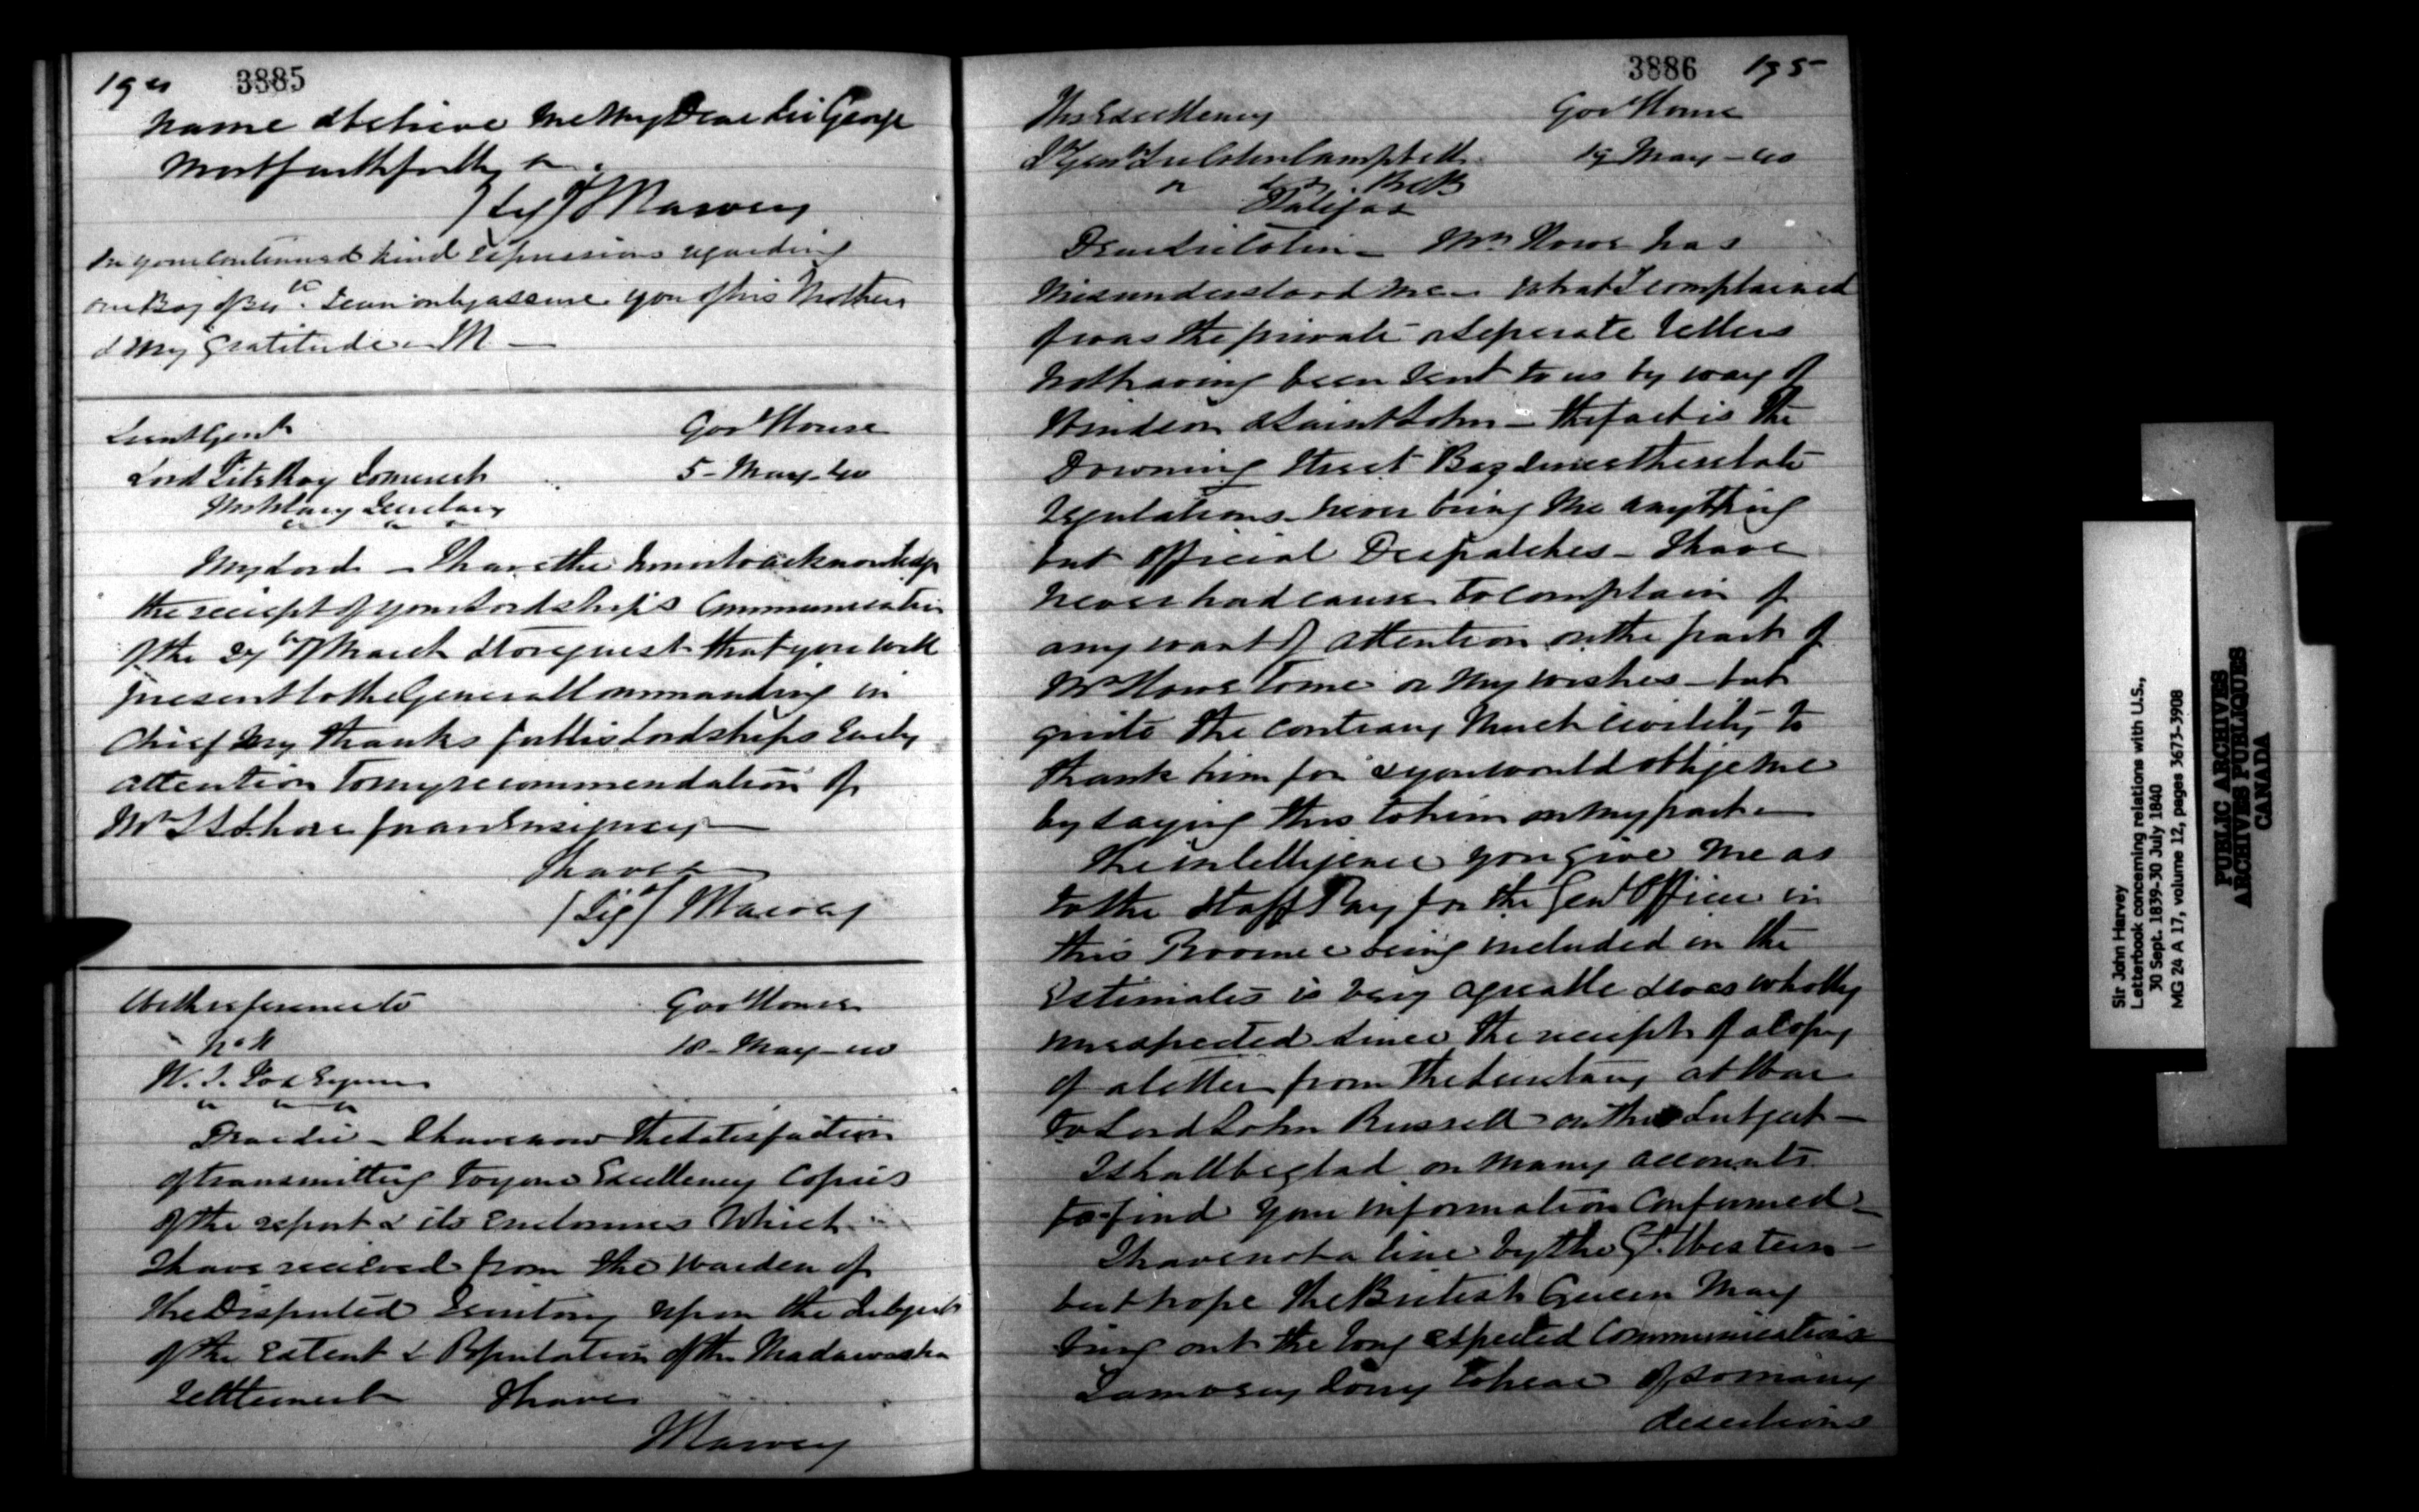 194 3885
name & believe me My Dear Sir George
Most faithfully
(Sig) J Harvey
In your continued kind expressions regarding
our Boy of Bn I can only assure you of his Mothers
& My Gratitude
Lieut Genl
Lord FitzRoy Somerset
Military Secretary
Govt House
5 - May - 40
My Lord - I have the honor to acknowledge
the receipt of your Lordship's Communication
of the of March & to request that you will
present to the General Commanding in
Chief My thanks for His Lordship's Early
attention to my recommendation of
Mr Shore for an Ensigncy
I have
(Sigd) J Harvey
With reference to
W. T. Fox Esquire
Govt House
18 - May - 40
Dear Sir - I have now the Satisfaction
of transmitting to your Excellency Copies
of the report & its Enclosures Which
I have received from the Warden of
the Disputed Territory upon the Subject
of the Extent & Population of the Madawaska
Settlement I have
J Harvey
3886 195
His Excellency
Lt Genl Sir Colin Campbell
K.C.B
Halifax
Govt House
19 May - 40
Dear Sir Colin - Mr Howe has
Misunderstood me - What I complained
of was the private & Seperate Letters
not having been Sent to us by way of
Windsor & Saint John - the fact is the
Downing Street Bag Since these late
regulations never bring me anything
but Official Despatches - I have
never had cause to complain of
any want of attention on the part of
Mr Howe to me or My wishes - but
quite the contrary Much civility to
thank him for & you would oblige me
by saying this to him on my part -
The intelligence you give me as
to the Staff Pay for the Genl Officer in
this Province being included in the
Estimates is very agreable & was wholly
unexpected Since the receipt of a Copy
of a letter from the Secretary at War
to Lord John Russell on the Subject -
I shall be glad on many accounts
to find your information Confirmed -
I have not a line by the Gt. Western -
but hope the British Queen May
bring out the long expected Communications
I am very Sorry to hear of so many
desertions
Sir John Harvey
Letterbook concerning relations with U.S.,
30 Sept. 1839-30 July 1840
MG 24 A 17, volume 12, pages 3673-3908
PUBLIC ARCHIVES
ARCHIVES PUBLIQUES
CANADA